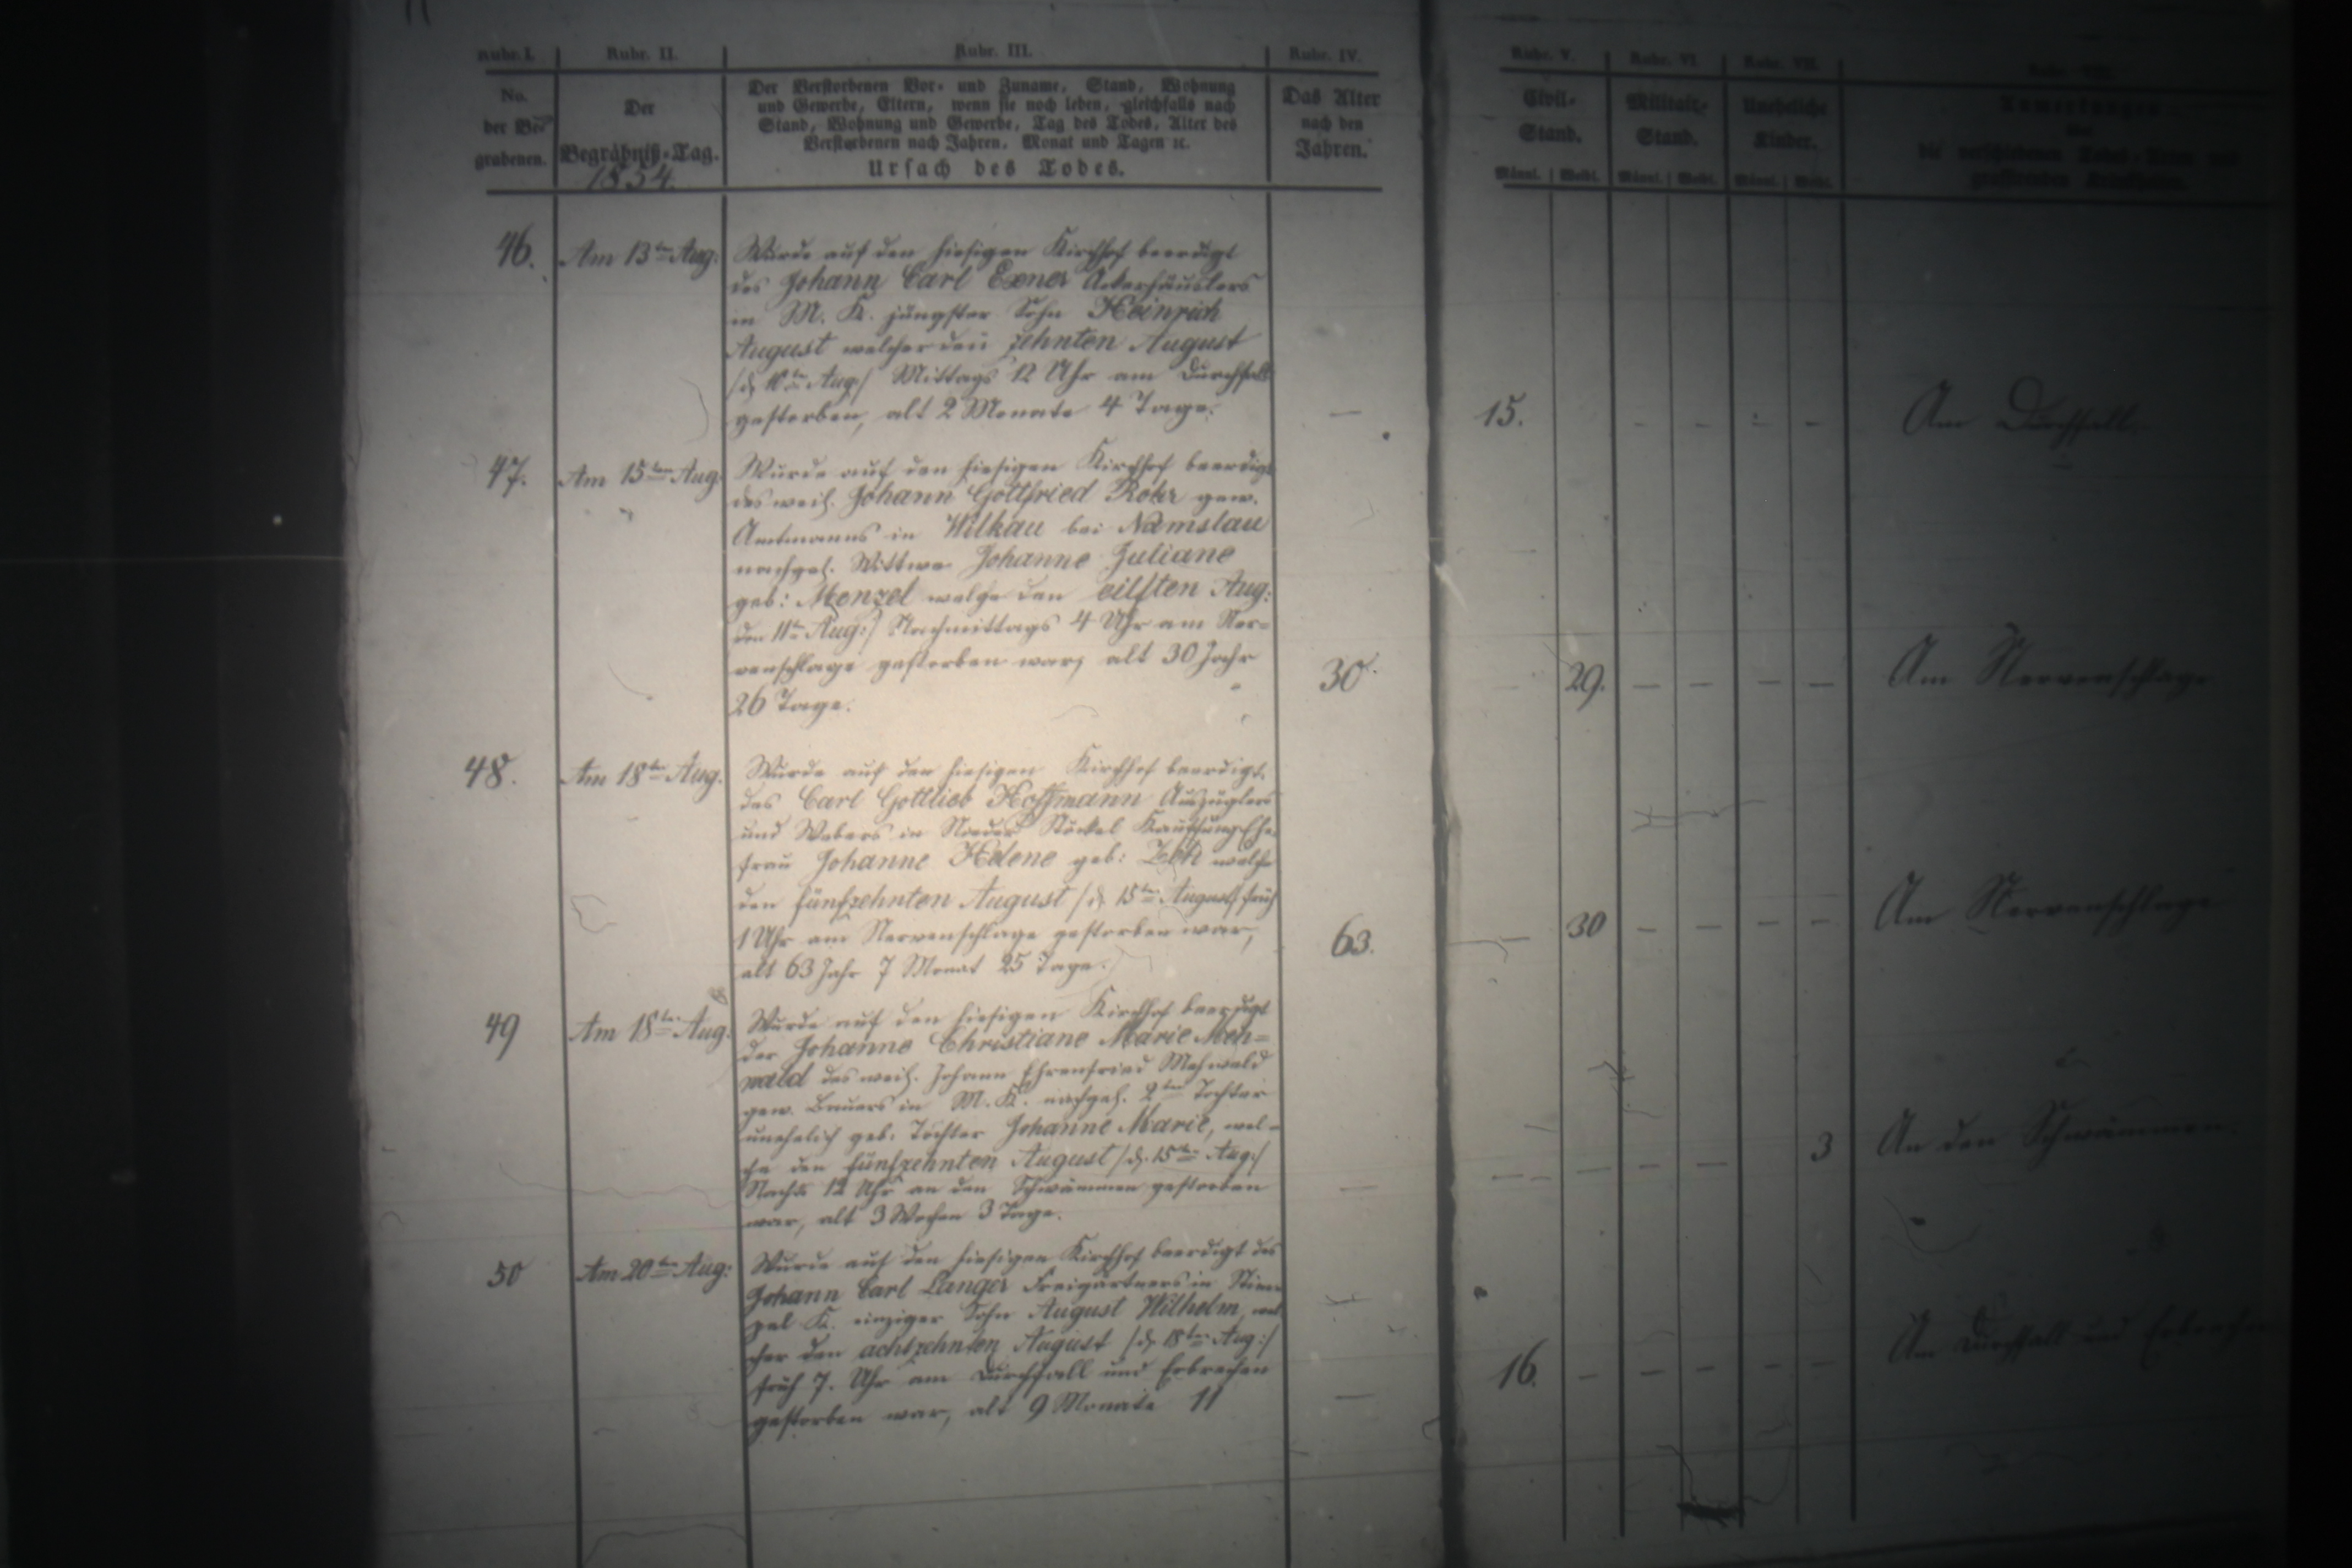 Rubr. I. Rubr. II. Rubr. III. Rubr. IV. Rubr. V. Rubr. VI. Rubr. VII.
No. der Begrabenen.
Der Begräbniß-Tag.
1854.
Der Verstorbenen Vor- und Zuname, Stand, Wohnung
und Gewerbe, Eltern, wenn sie noch leben, gleichfalls nach
Stand, Wohnung und Gewerbe, Tag des Todes, Alter des
Verstorbenen nach Jahren, Monat und Tagen ꝛc.
Ursach des Todes.
Das Alter
nach den
Jahren.
Civil-
Stand.
Militair-
Stand.
Uneheliche
Kinder.
Männl. Weibl. Männl. Weibl. Männl. Weibl.
46. Am 13ten Aug:
Wurde auf den hiesigen Kirchhof beerdigt
des Johann Carl Exner Ackerhäuslers
in M. K. jüngster Sohn Heinrich
August welcher den zehnten August
/d. 10ten Aug:/ Mittags 12 Uhr am Durchfall
gestorben, alt 2 Monate 4 Tage.
— 15. - - - - Am Durchfall.
47. Am 15ten Aug:
Wurde auf den hiesigen Kirchhof beerdigt
des weil. Johann Gottfried Rohr gew.
Amtmanns in Wilkau bei Namslau
nachgel. Wittwe Johanne Juliane
geb: Menzel welche den eilften Aug:
den 11ten Aug:/ Nachmittags 4 Uhr am Ner=
venschlage gestorben war, alt 30 Jahr
26 Tage.
30. — 29. — — — — Am Nervenschlage
48. Am 18ten Aug.
Wurde auf den hiesigen Kirchhof beerdigt.
des Carl Gottlieb Hoffmann Auszüglers
und Webers in Nieder Stöckel Kauffung Ehe-
frau Johanne Helene geb: welche
den fünfzehnten August /d. 15ten August/ früh
1 Uhr am Nervenschlage gestorben war,
alt 63 Jahr 7 Monat 25 Tage.
63. — 30 - - - - Am Nervenschlage
49 Am 18ten Aug:
Wurde auf den hiesigen Kirchhof beerdigt
der Johanne Christiane Marie Meh=
wald des weil. Johann Ehrenfried Mehwald
gew. Bauers in M. K. nachgel. 2ten Tochter
unehelich geb. Tochter Johanne Marie, wel=
che den fünfzehnten August /d. 15ten Aug:/
Nachts 12 Uhr an den Schwämmen gestorben
war, alt 3 Wochen 3 Tage.
— — — — — 3 An den Schwämmen.
50 Am 20ten Aug:
Wurde auf den hiesigen Kirchhof beerdigt des
Johann Carl Langer Freigärtners in
K. einziger Sohn August Wilhelm, wel
cher den achtzehnten August /d. 18ten Aug:/
früh 7. Uhr am Durchfall und Erbrechen
gestorben war, alt 9 Monate 11
— 16. - - - - - Am Durchfall und Erbrechen